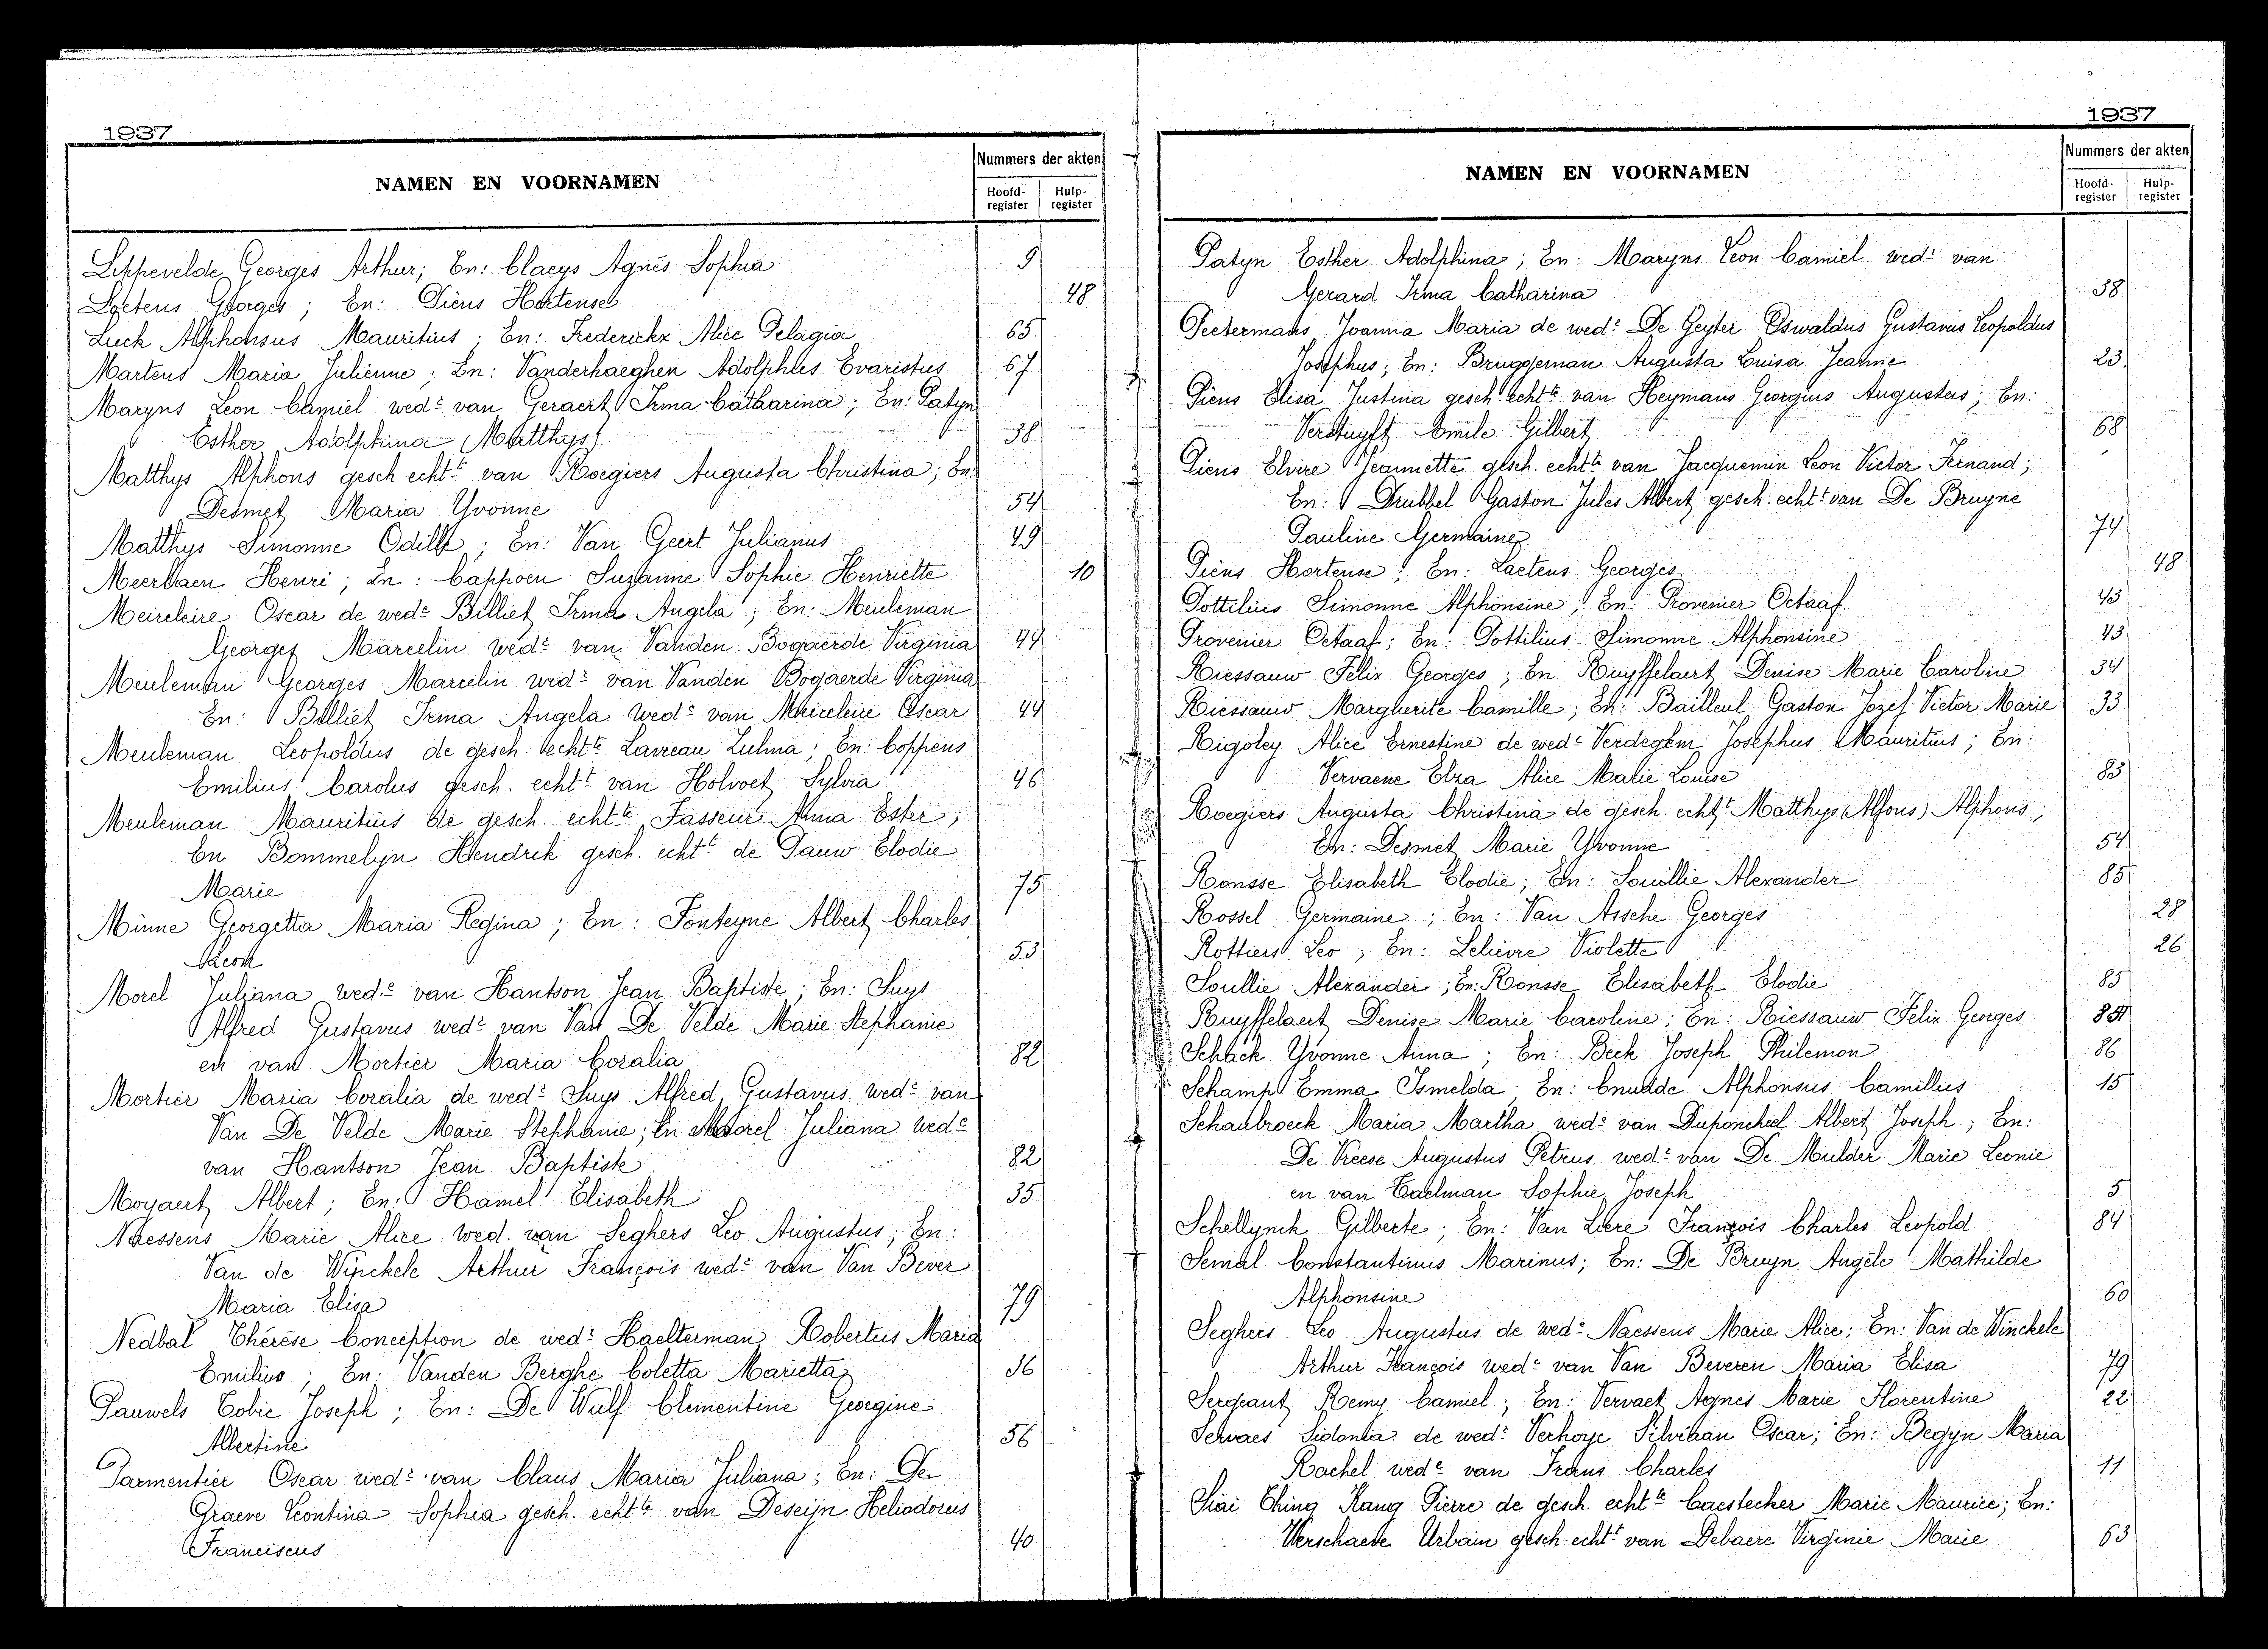 1937
NAMEN EN VOORNAMEN
Nummers der akten
Hoofd-register
Hulp-register
Leppevelde Georges Arthur; En: Claeys Agnès Sophia 9
Loetens Georges; En: Piens Hortense 48
Luck Alphonsus Mauritius; En: Frederickx Alice Pelagia 65
Martens Maria Julienne; En: Vanderhaeghen Adolphus Evaristus 67
Maryns Leon Camiel wedr van Geraert Irma Catharina; En: Patyn
Esther Adolphina (Matthys) 38
Matthys Alphons gesch echtt van Roegiers Augusta Christina; En:
Desmet Maria Yvonne 54
Matthys Simonne Odilla; En: Van Geert Julianus 49
Meerbaen Henri; En: Cappoen Suzanne Sophie Henriette 10
Meireleire Oscar de wede Billiet Irma Angela; En: Meuleman
Georges Marcelin wedr van Vanden Bogaerde Virginia 44
Meuleman Georges Marcelin wedr van Vanden Bogaerde Virginia
En: Billiet Irma Angela wede van Meireleire Oscar 44
Meuleman Leopoldus de gesch. echtte Laveau Zulma; En: Coppens
Emilius Carolus gesch. echtt van Holvoet Sylvia 46
Meuleman Mauritius de gesch. echtte Fasseur Anna Ester;
En Bommelyn Hendrik gesch. echtt de Pauw Elodie
Marie 75
Minne Georgetta Maria Regina; En: Fonteyne Albert Charles
Leon 53
Morel Juliana wede van Hantson Jean Baptiste; En: Suys
Alfred Gustavus wedr van Van De Velde Marie Stephanie
en van Mortier Maria Coralia 82
Mortier Maria Coralia de wedr Suys Alfred Gustavus wedr van
Van De Velde Marie Stephanie; En Morel Juliana wede
van Hantson Jean Baptiste 82
Moyaert Albert; En: Hamel Elisabeth 35
Naessens Marie Alice wed. van Seghers Leo Augustus; En:
Van de Winckele Arthur François wedr van Van Bever
Maria Elisa 79
Nedbal Thérèse Conception de wedr Haelterman Robertus Maria
Emilius; En: Vanden Berghe Coletta Marietta 36
Pauwels Tobie Joseph; En: De Wulf Clementine Georgine
Albertine 56
Parmentier Oscar wedr van Claus Maria Juliana; En: De
Graeve Leontina Sophia gesch. echtte van Deseijn Heliodorus
Franciscus 40
1937
NAMEN EN VOORNAMEN
Nummers der akten
Hoofd-register
Hulp-register
Patyn Esther Adolphina; En: Maryns Leon Camiel wedr van
Gerard Irma Catharina 38
Peetermans Joanna Maria de wedr De Geyter Oswaldus Gustavus Leopoldus
Josephus; En: Bruggeman Augusta Luisa Jeanne 23
Piens Elisa Justina gesch echtte van Heymans Georgius Augustus; En:
Verstuyft Emile Gilbert 68
Piens Elvire Jeannette gesch. echtte van Jacquemin Leon Victor Fernand;
En: Drubbel Gaston Jules Albert gesch. echtt van De Bruyne
Pauline Germaine 74
Piens Hortense; En: Laetens Georges 48
Pottilius Simonne Alphonsine; En: Provenier Octaaf 43
Provenier Octaaf; En: Pottilius Simonne Alphonsine 43
Riessauw Felix Georges; En Ruyffelaert Denise Marie Caroline 34
Riessauw Margherite Camille; En: Bailleul Gaston Jozef Victor Marie 33
Rigoley Alice Ernestine de wede Verdegem Josephus Mauritius; En:
Vervaene Elza Alice Marie Louise 83
Roegiers Augusta Christina de gesch. echtt Matthys (Alfons) Alphons;
En: Desmet Marie Yvonne 54
Ronsse Elisabeth Elodie; En: Soullie Alexander 85
Rossel Germaine; En: Van Assche Georges 28
Rottiers Leo; En: Lelièvre Violette 26
Soullie Alexander; En: Ronsse Elisabeth Elodie 85
Ruyffelaert Denise Marie Caroline; En: Riessauw Felix Georges
Schack Yvonne Anna; En: Beck Joseph Philemon 86
Schamp Emma Ismelda; En: Cnudde Alphonsus Camillus 15
Schaubroeck Maria Martha wede van Duponcheel Albert Joseph; En:
De Vreese Augustus Petrus wedr van De Mulder Marie Leonie
en van Eaelman Sophie Joseph 5
Schellynck Gilberte; En: Van Liere François Charles Leopold 84
Semal Constantinus Marinus; En: De Bruyn Angèle Mathilde
Alphonsine 60
Seghers Leo Augustus de wede Naessens Marie Alice; En: Van de Winckele
Arthur François wedr van Van Beveren Maria Elisa 79
Sergeant Remy Camiel; En: Vervaet Agnes Marie Florentine 22
Servaes Sidonia de wedr Verhoye Silvriaan Oscar; En: Begyn Maria
Rachel wede van Frans Charles 11
Siai Ching Kang Pierre de gesch. echtte Caestecker Marie Maurice; En:
Verschaeve Urbain gesch. echtt van Debaere Virginie Marie 63